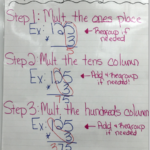 Step 1: Mult. the ones place
Ex: 125
←Regroup if needed!
Step 2: Mult the tens column
Ex. 125
←Add & Regroup if needed!
Step 3: Mult. the hundreds column
Ex. 125
←Add & Regroup if needed!
375